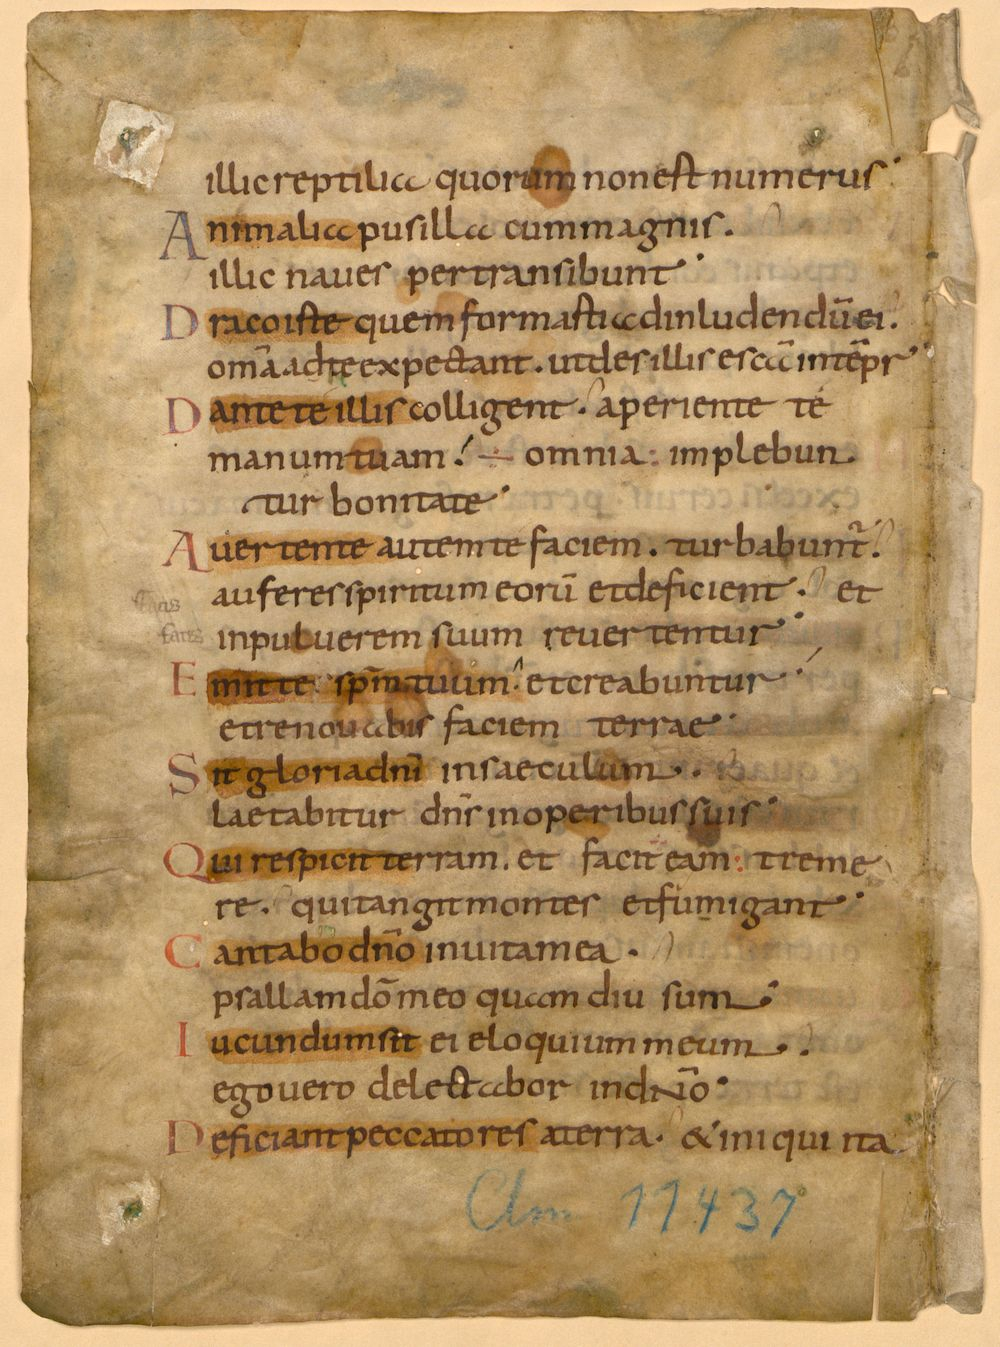 illic reptilia quorum non est numerus·
Animalia pusilla cum magnis.
illic naues pertransibunt·
Draco iste quem formasti ad inludendū ei.
om̄a a dte expectant. ut des illis escā in tēpr
Dante te illis colligent. aperiente te
manum tuam! ÷ omnia: implebun
tur bonitate·
Auertente autem te faciem. turbabunt̄.
auferes spiritum eorū et deficient. et
in puluerem suum reuertentur·
Emitte sp̄m tuum. et creabuntur
et renouabis faciem terrae·
Sit gloria dn̄i in saeculum.
laetabitur dn̄s in operibus suis·
Qui respicit terram. et facit eam: treme
re. qui tangit montes et fumigant·
Cantabo dn̄o in uita mea.
psallam dō meo quam diu sum.
Iucundum sit ei eloquium meum.
ego uero delectabor in dn̄o·
Deficiant peccatores a terra. & iniquita
Clm 11437